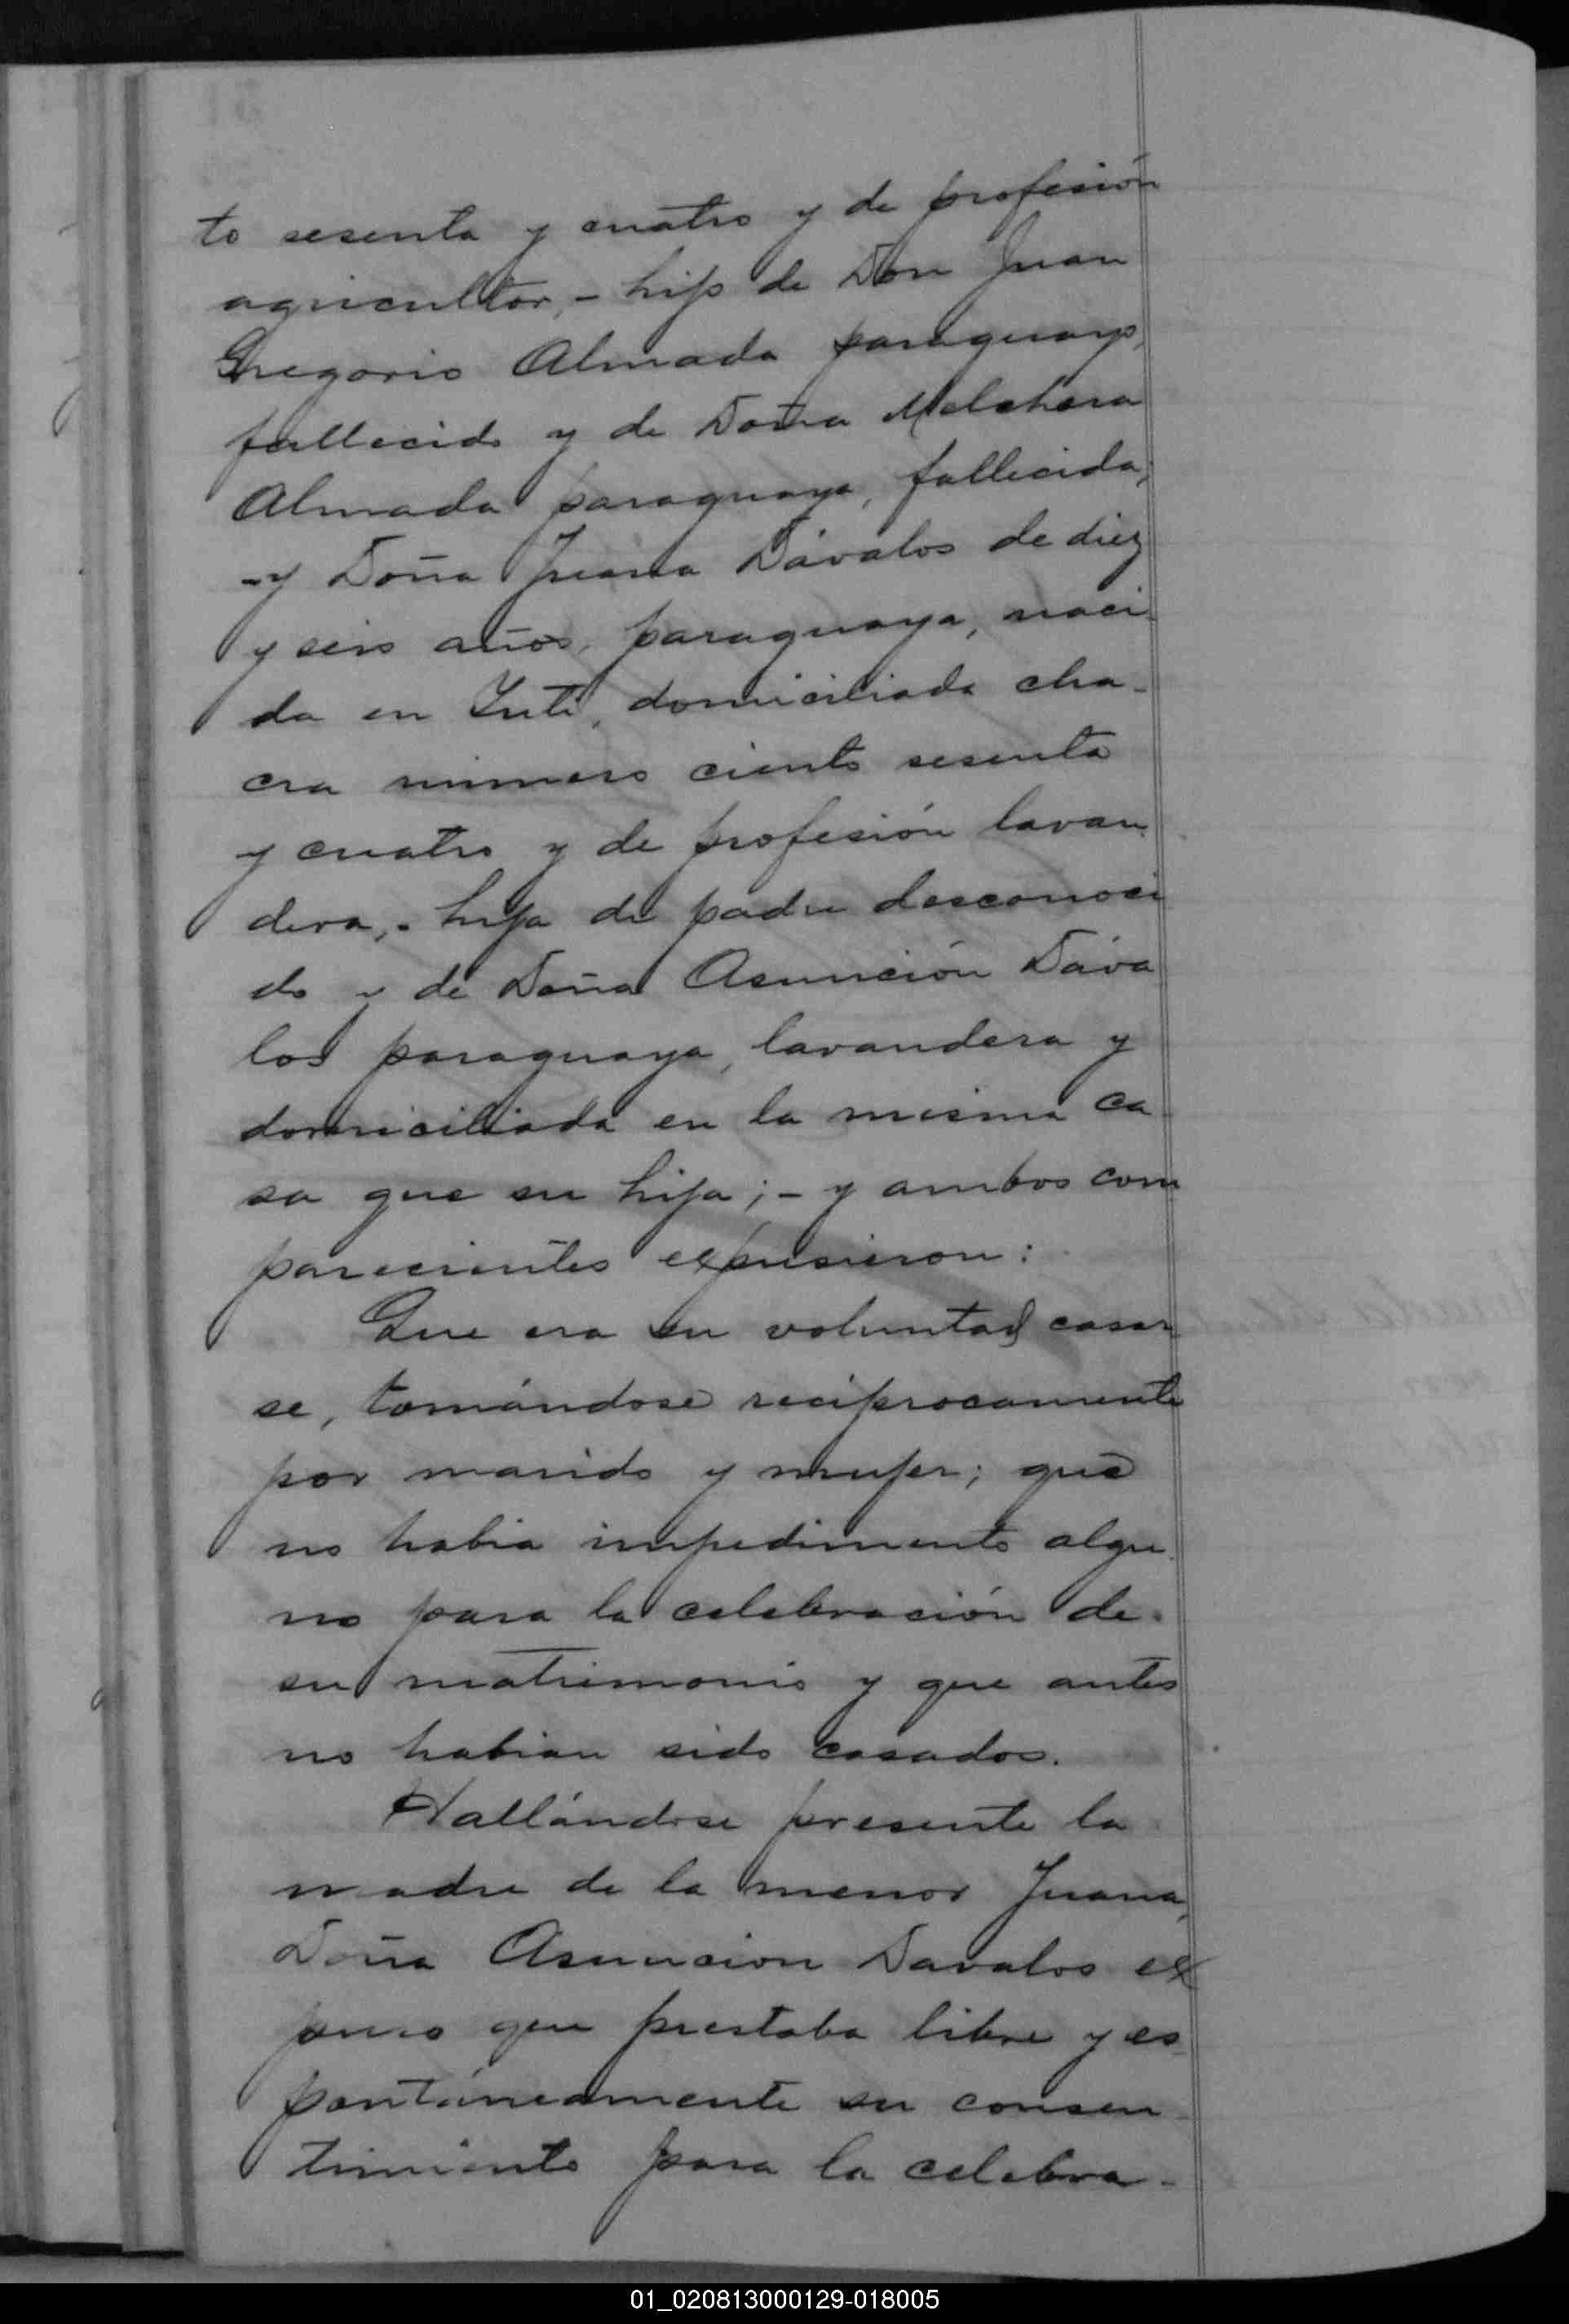 to sesenta y cuatro y de profesión
agricultor,- hijo de Don Juan
Gregorio Almada paraguayo,
fallecido y de Doña Melchora
Almada paraguaya, fallecida,
-y Doña Juana Dávalos de diez
y seis años, paraguaya, naci-
da en Yuti, domiciliada cha-
cra número ciento sesenta
y cuatro y de profesión lavan-
dera,- hija de padre desconoci
do y de Doña Asunción Dáva
los paraguaya, lavandera y
domiciliada en la misma ca-
sa que su hija;- y ambos com
parecientes expusieron:
Que era su voluntad casar
se, tomándose reciprocamente
por marido y mujer; que
no habia impedimento algu-
no para la celebración de-
su matrimonio y que antes
no habian sido casados.
Hallándose presente la
madre de la menor Juana,
Doña Asuncion Davalos ex
puso que prestaba libre y es-
pontáneamente su consen-
timiento para la celebra-
01_020813000129-018005